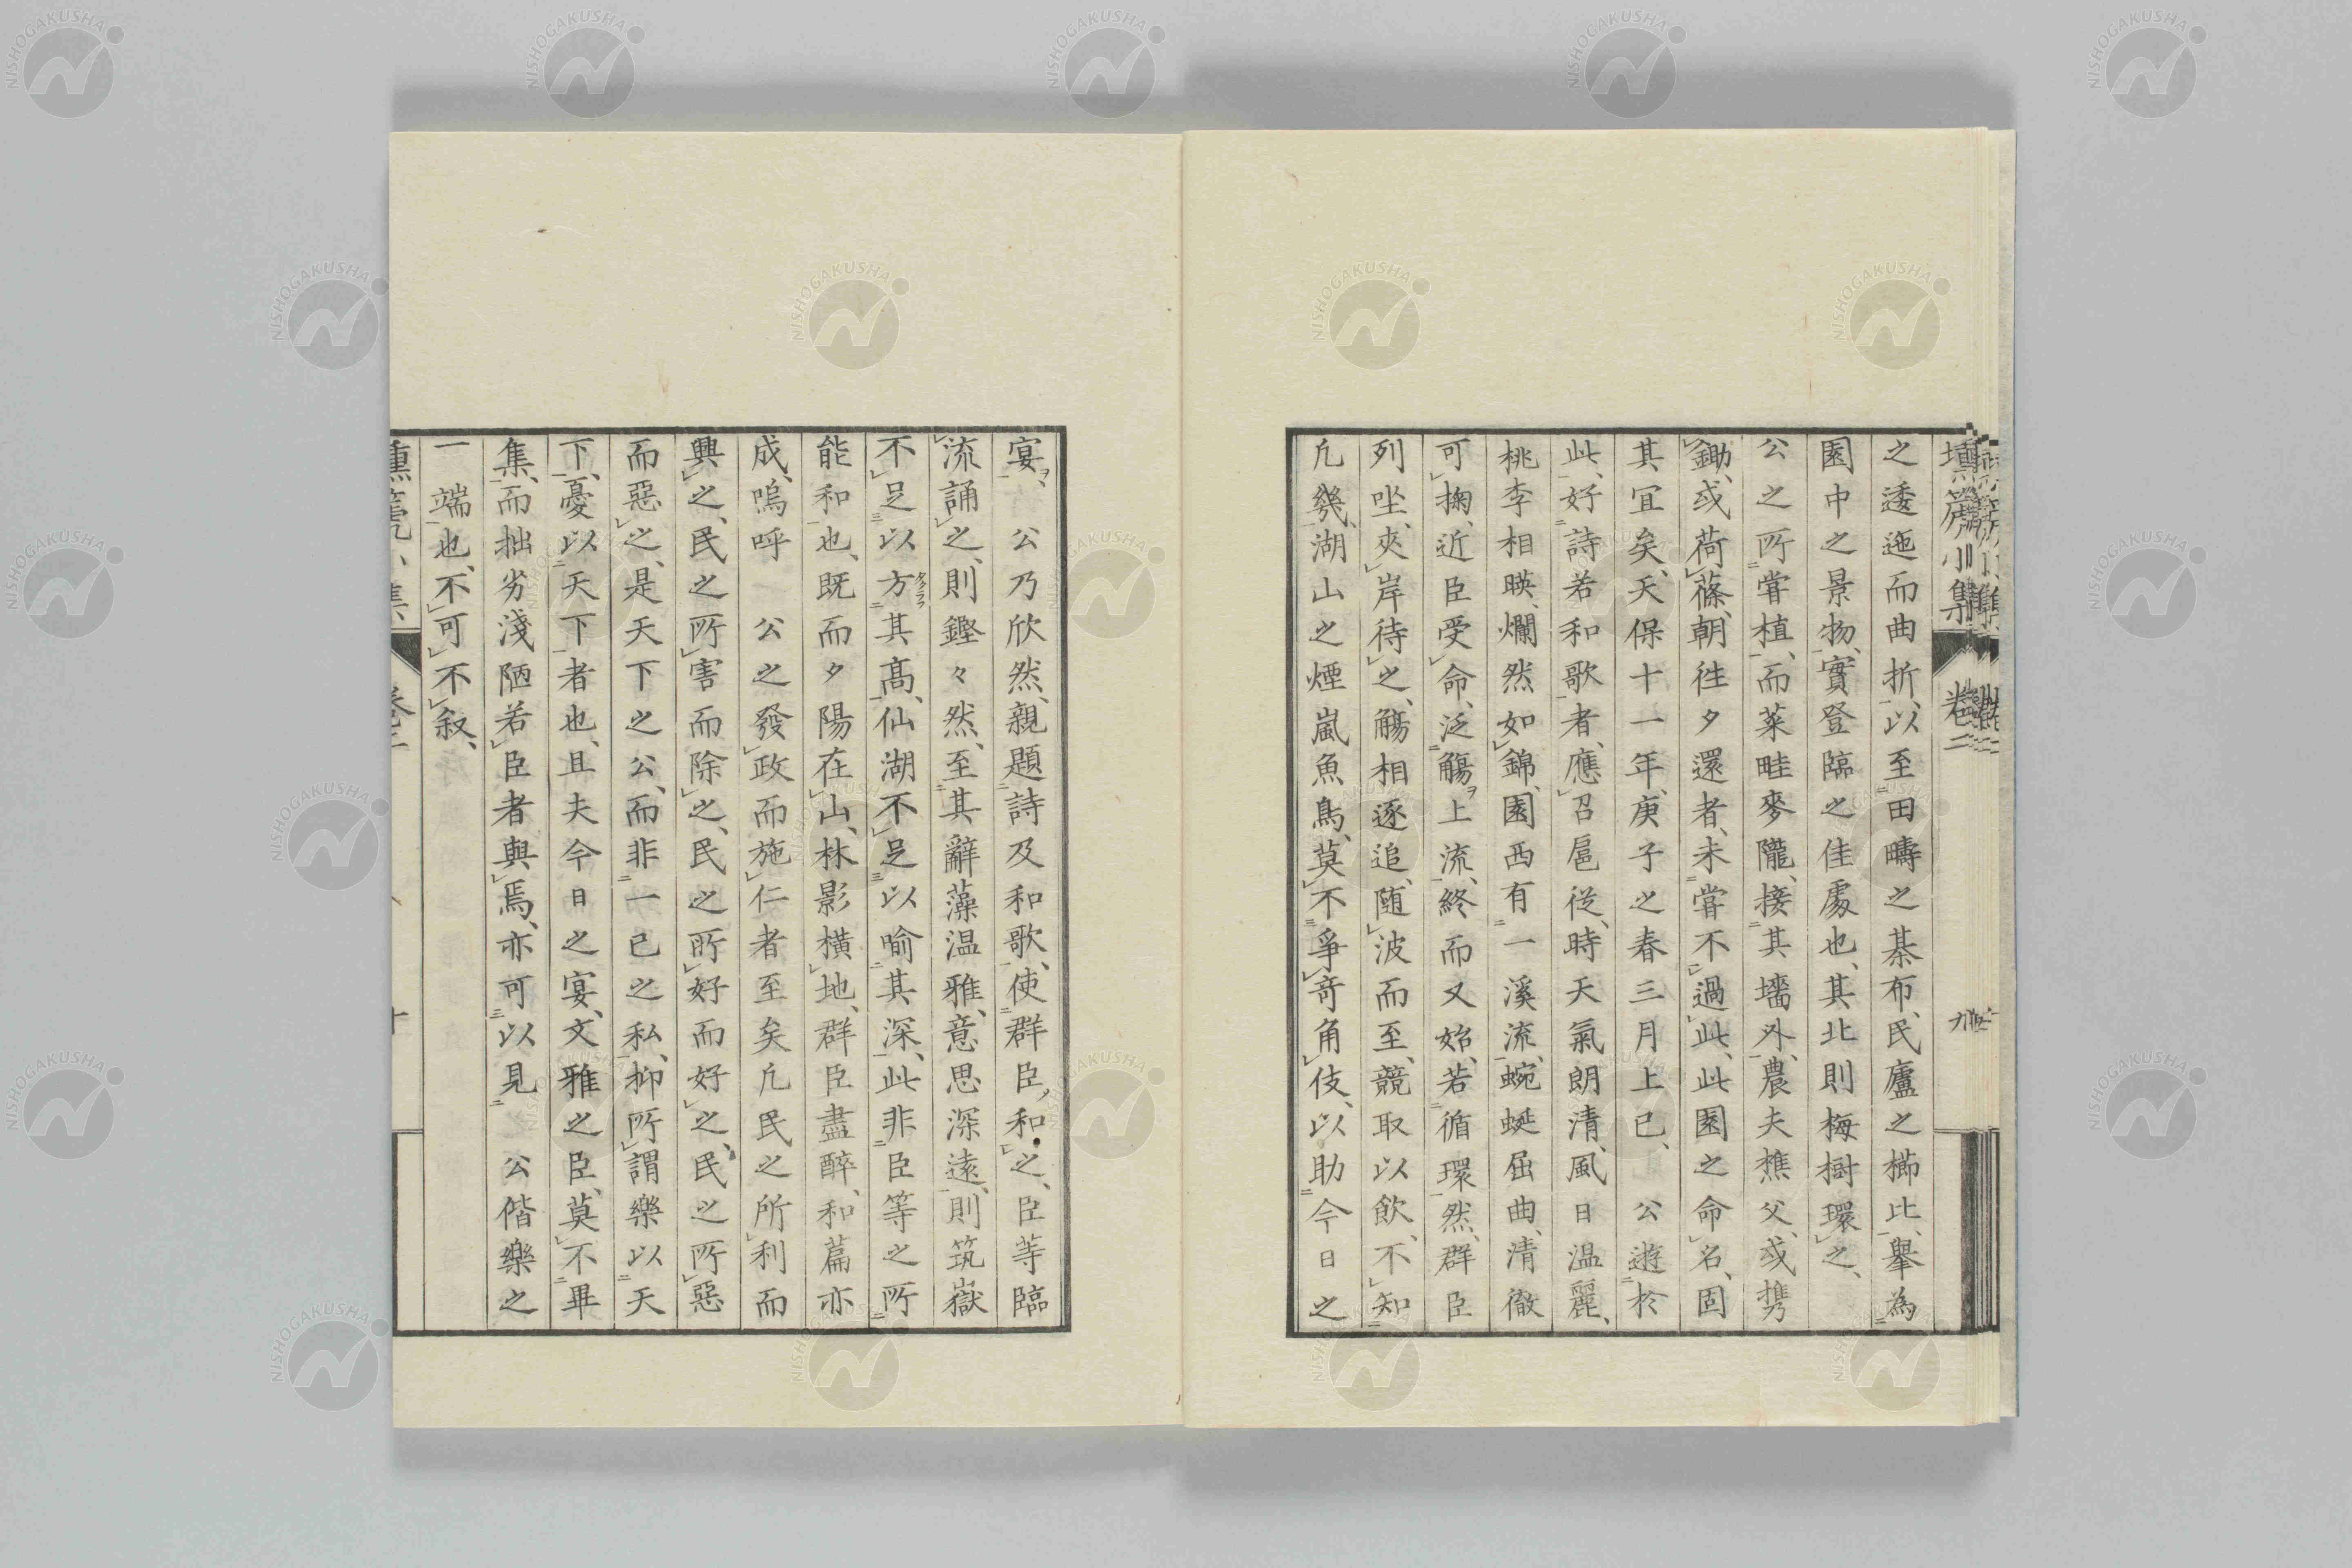 壎篪小集 卷二 九
之逶迤而曲折、以至田疇之棊布、民廬之櫛比、擧為
園中之景物、實登臨之佳處也、其北則梅樹環之、
公之所甞植、而菜畦麥隴、接其墻外、農夫樵父、或携
鋤、或荷蓧、朝徃夕還者、未甞不過此、此園之命名、固
其宜矣、天保十一年、庚子之春三月上巳、公遊於
此、好詩若和歌者、應召扈従、時天氣朗清、風日温麗、
桃李相暎、爛然如錦、園西有一溪流、蜿蜒屈曲、清徹
可掬、近臣受命、泛觴ヲ上流、終而又始、若循環然、群臣
列坐、夾岸待之、觴相逐追、随波而至、競取以飲、不知
凢幾、湖山之煙嵐魚鳥、莫不爭竒角伎、以助今日之
宴ヲ、公乃欣然、親題詩及和歌、使群臣和之、臣等臨
流誦之、則鏗々然、至其辭藻温雅、意思深遠、則筑嶽
不足以方タクラフ其髙、仙湖不足以喩其深、此非臣等之所
能和也、既而夕陽在山、林影横地、群臣盡醉、和篇亦
成、嗚呼 公之發政而施仁者至矣凢民之所利而
興之、民之所害而除之、民之所好而好之、民之所惡
而惡之、是天下之公、而非一己之私、抑所謂樂以天
下、憂以天下者也、且夫今日之宴、文雅之臣、莫不畢
集、而拙劣淺陋若臣者與焉、亦可以見 公偕樂之
一端也、不可不叙、